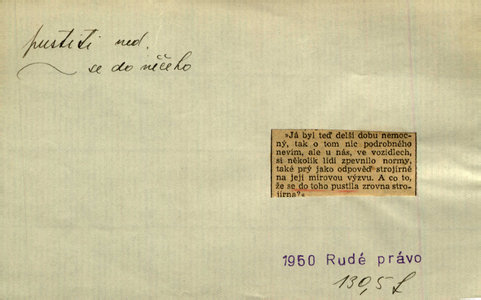 pustiti ned.
se do něčeho
»Já byl teď delší dobu nemoc-
ný, tak o tom nic podrobného
nevím, ale u nás, ve vozidlech,
si několik lidí zpevnilo normy,
také prý jako odpověď strojírně
na její mírovou výzvu. A co to,
že se do toho pustila zrovna stro-
jírna?«
1950 Rudé právo
130,5